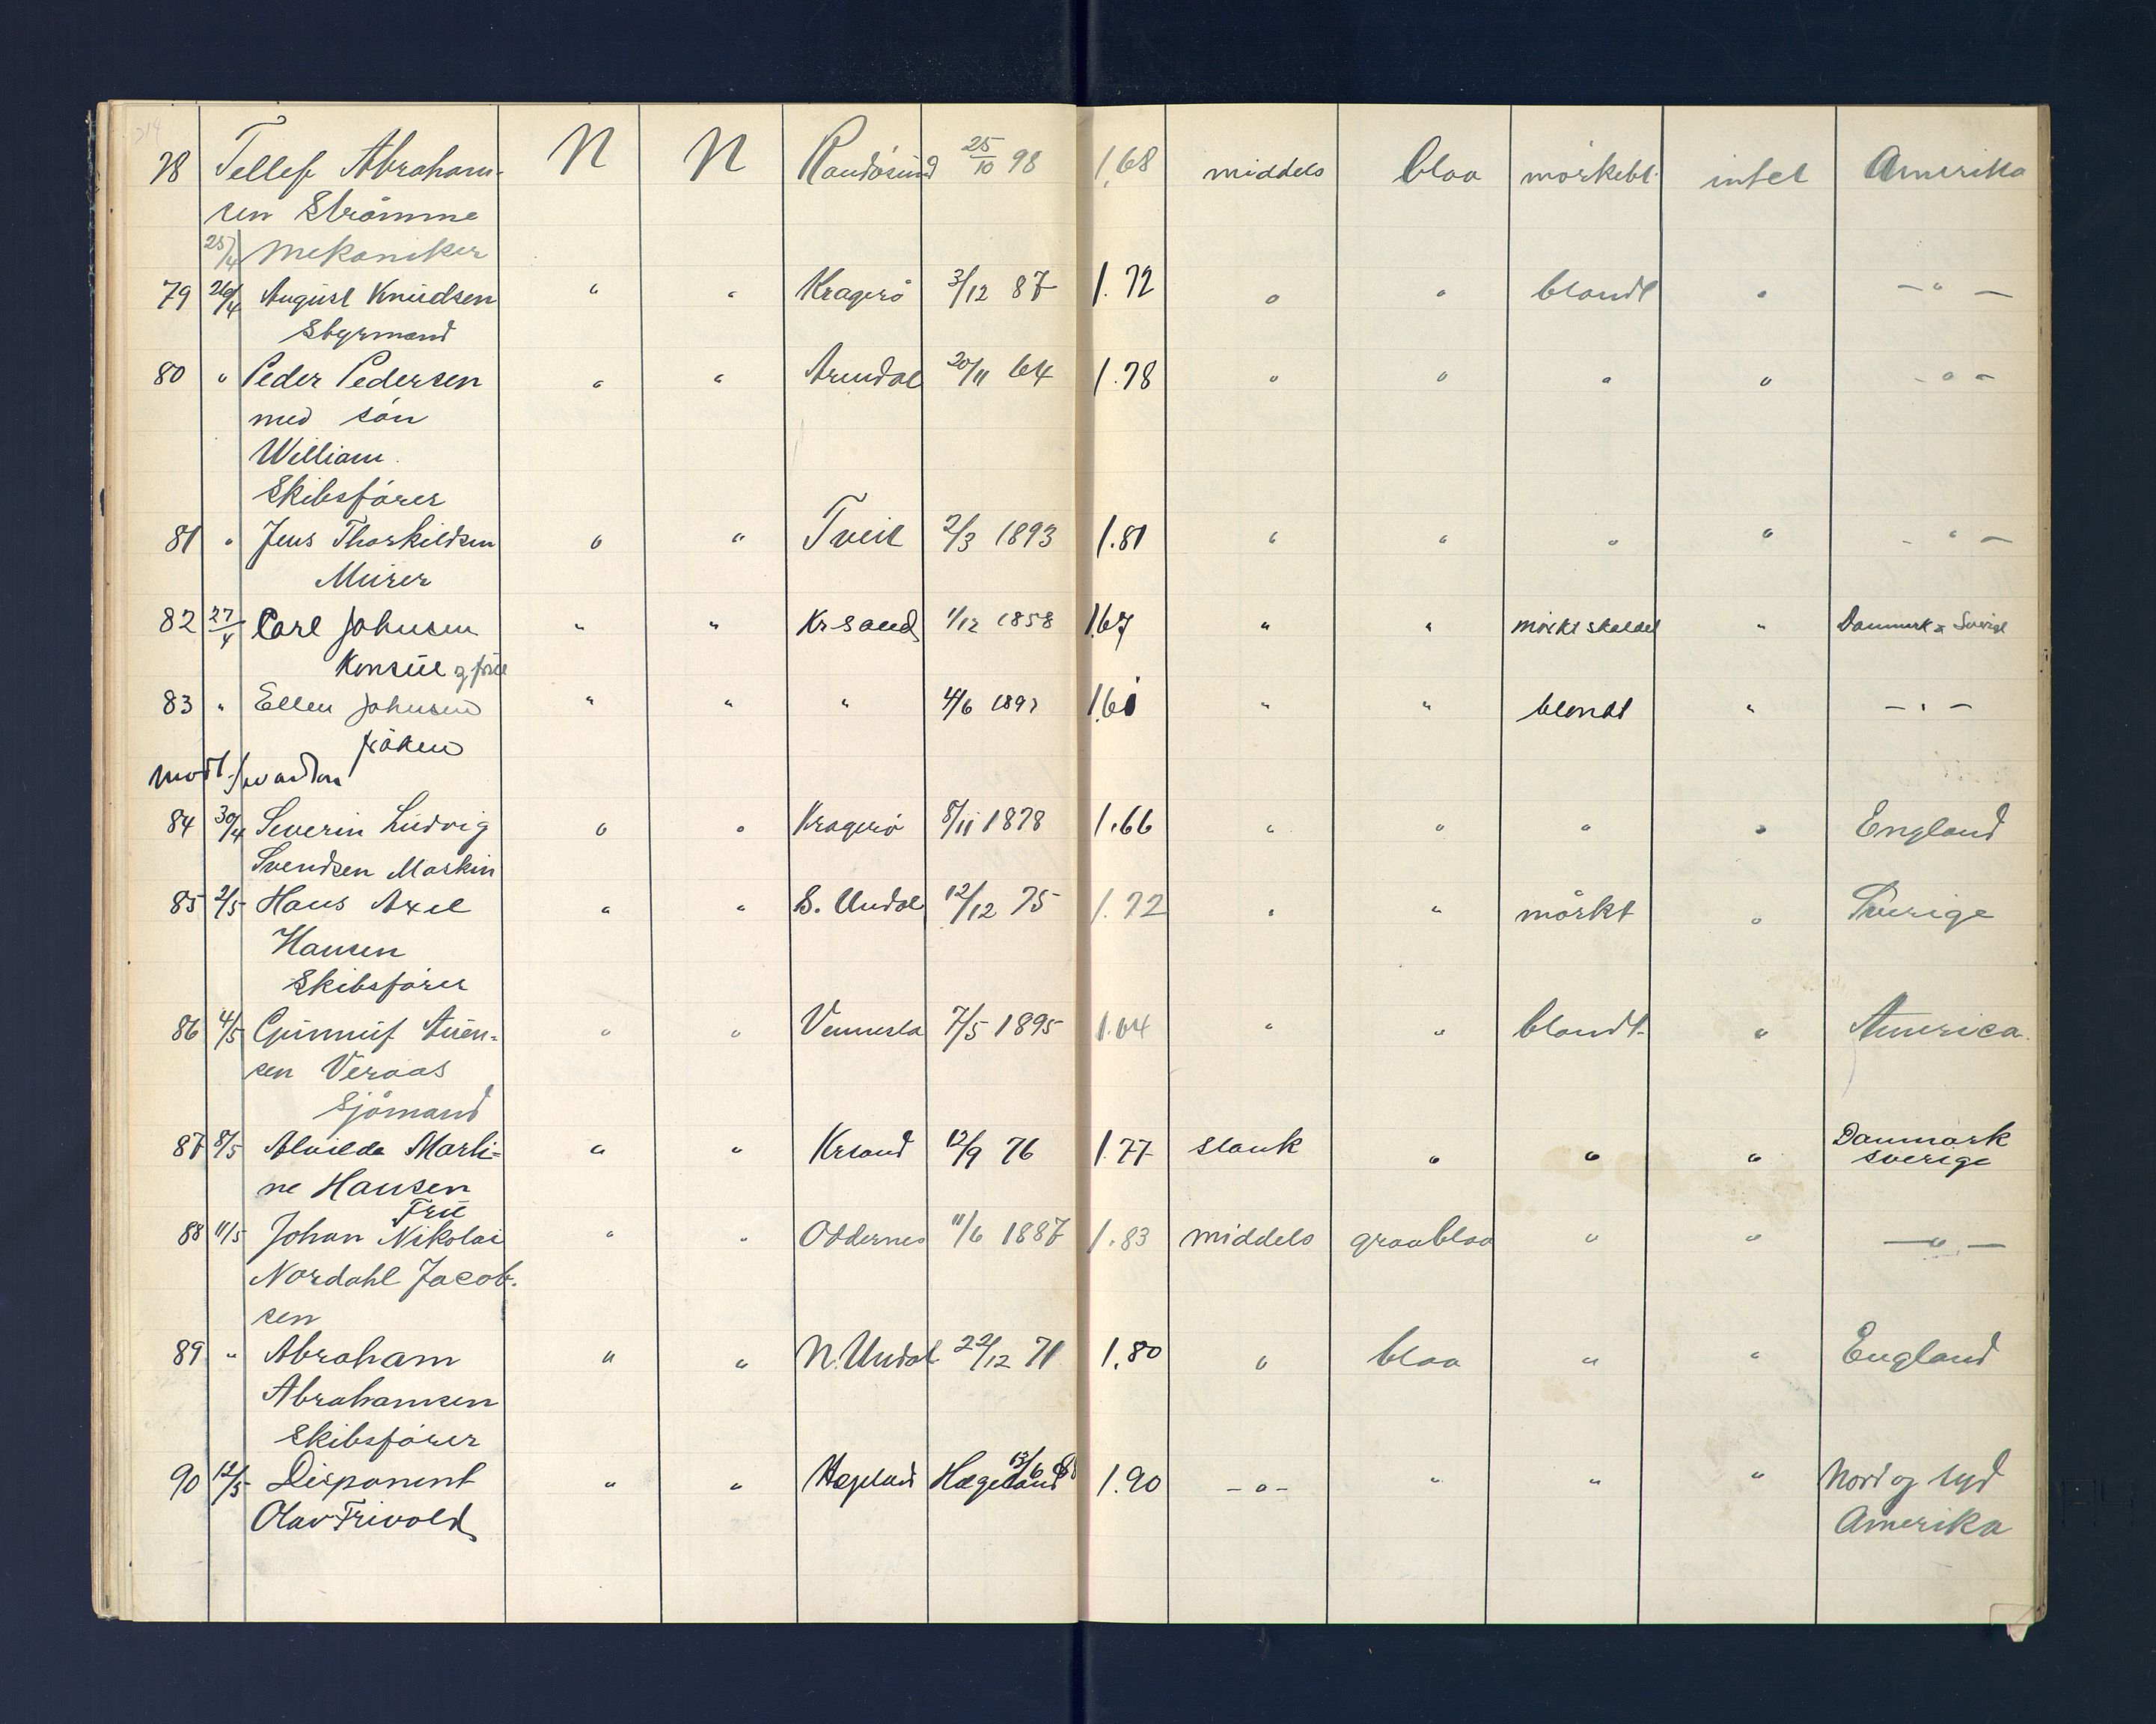 78 Tellef Abraham- N N Randösund 25/10 98 1,68 middels blaa mörkebl. intet Amerika
sen Strömme
25/4 Mekaniker
79 26/4 August Knudsen " " Kragerö 3/12 87 1.72 " " blondt " — " —
Styrmand
80 " Peder Pedersen " " Arendal 20/11 64 1.78 " " " " - " -
med sön
William.
Skibsförer
81 " Jens Thorkildsen " " Tveit 2/3 1893 1.81 " " " " - " -
Murer
82 27/4 Carl Johnsen " " Kr sand 1/12 1858 1.67 " " mörkt skaldet " Danmark & Sverige
Konsul og frue
83 " Ellen Johnsen " " " 4/6 1897 1.61 " " blondt " — " —
fröken
84 30/4 Severin Ludvig " " Kragerö 8/11 1878 1.66 " " " " England
Svendsen Maskin
85 2/5 Hans Axel " " S. Undal 12/12 75 1.72 " " mörkt " Sverige
Hansen
Skibsförer
86 4/5 Gunnuf Auen- " " Vennesla 7/5 1895 1.64 " " blondt " America.
sen Veraas
Sjömand
87 8/5 Alvilde Marti= " " Krsand 12/9 76 1.77 slank " " " Danmark
Sverige
ne Hansen
Frue
88 11/5 Johan Nikolai " " Oddernes 11/6 1887 1.83 middels graablaa " " — " —
Nordahl Jacob-
sen
89 " Abraham " " N. Undal 22/12 71 1.80 " blaa " " England
Abrahamsen
Skibsförer
90 12/5 Disponent " " Hægeland Hægeland 13/6 1.90 - " - " " " Nord og Syd
Olav Trivold Amerika